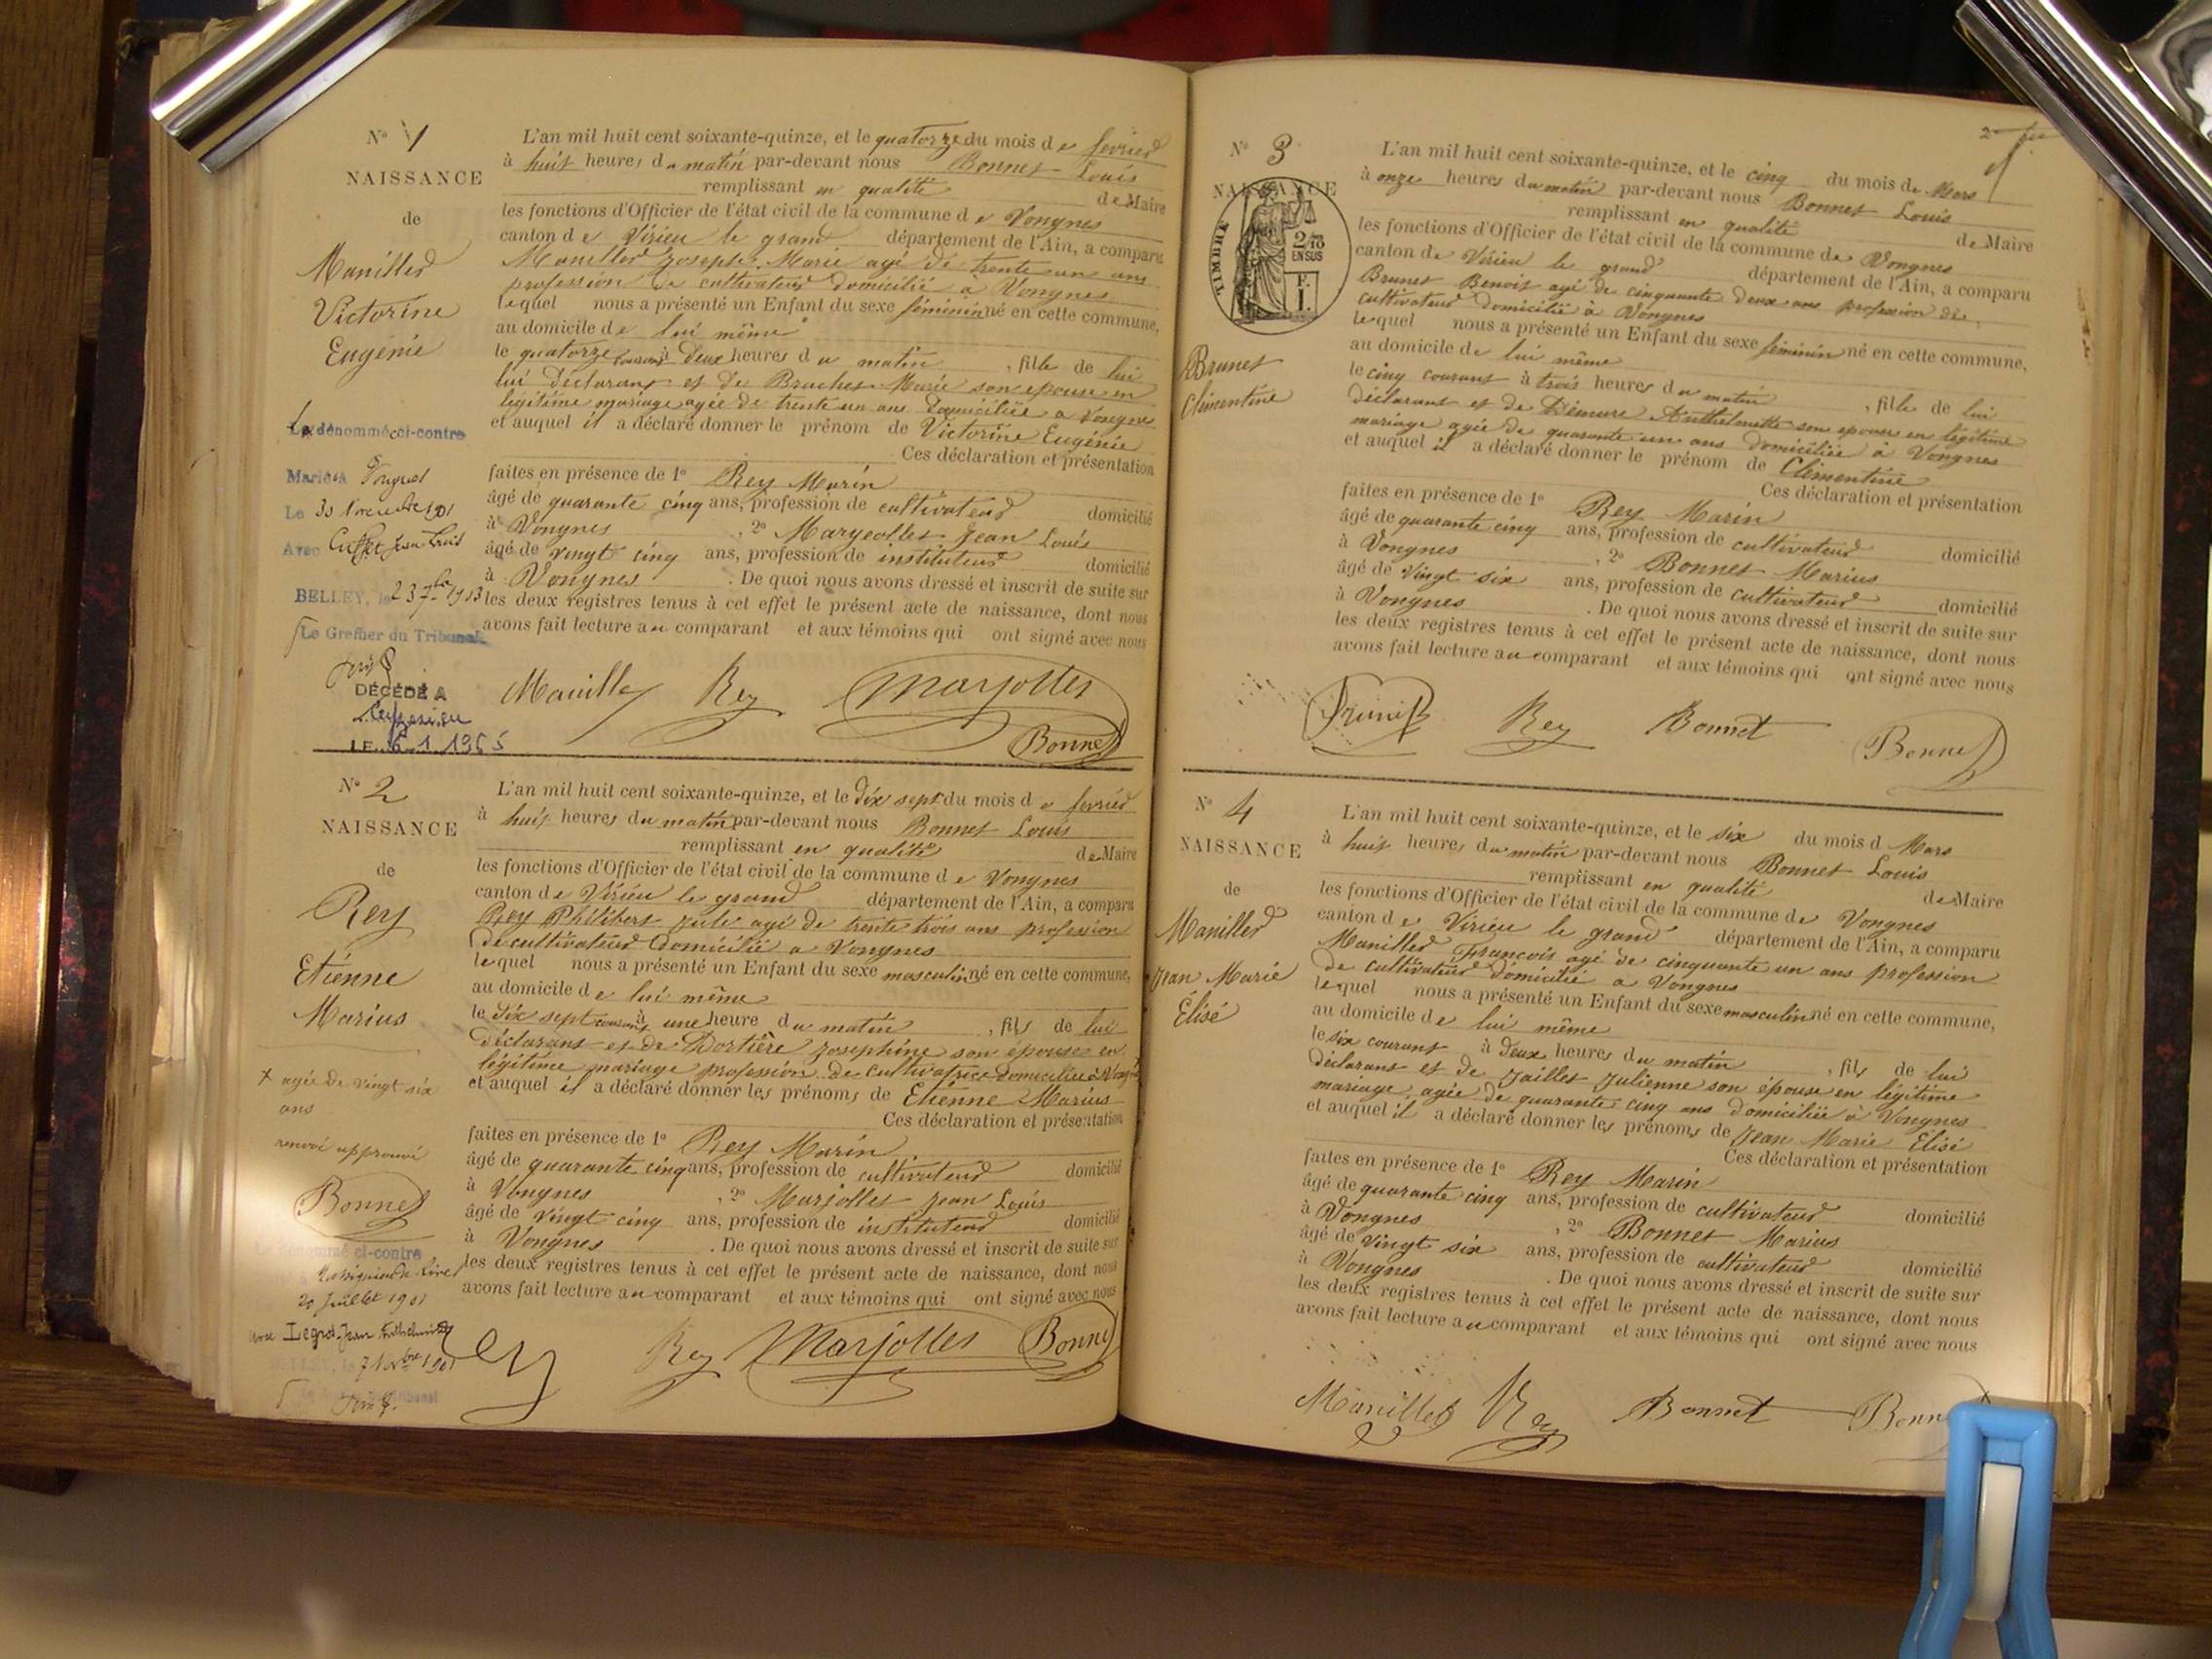 N° 1
NAISSANCE
de
Manillier
Victorine
Eugénie
La dénommée ci-contre
Mariée à
Le 30 Novembre 1901
Avec Jean Louis
BELLEY, le 23 1903
Le Greffier du Tribunal
DÉCÉDÉ A
LE 6.1.1965
L'an mil huit cent soixante-quinze, et le quatorze du mois de février
à huit heures du matin par-devant nous Bonnet Louis
remplissant en qualité de Maire
les fonctions d'Officier de l'état civil de la commune de Vongnes
canton de Virieu le grand département de l'Ain, a comparu
Manillier Joseph Marie agé de trente un ans
profession de cultivateur domicilié a Vongnes
lequel nous a présenté un Enfant du sexe féminin né en cette commune,
au domicile de lui même
le quatorze courant à deux heures du matin , fille de lui
lui déclarant et de Brachet Marie son epouse en
légitime mariage agée de trente un ans domiciliée a Vongnes
et auquel il a déclaré donner le prénom de Victorine Eugénie
Ces déclaration et présentation
faites en présence de 1° Rey Marin
âgé de quarante cinq ans, profession de cultivateur domicilié
à Vongnes , 2° Marjollet Jean Louis
âgé de vingt cinq ans, profession de instituteur domicilié
à Vongnes . De quoi nous avons dressé et inscrit de suite sur
les deux registres tenus à cet effet le présent acte de naissance, dont nous
avons fait lecture au comparant et aux témoins qui ont signé avec nous
Manillier Rey Marjollet
Bonnet
N° 2
NAISSANCE
de
Rey
Etienne
Marius
x agée de vingt six
ans
renvoi approuvé
Bonnet
Le dénommé ci-contre
20 Juillet 1901
avec Jean
BELLEY, le 7 Nobre 1901
L'an mil huit cent soixante-quinze, et le dix sept du mois de février
à huit heures du matin par-devant nous Bonnet Louis
remplissant en qualité de Maire
les fonctions d'Officier de l'état civil de la commune de Vongnes
canton de Virieu le grand département de l'Ain, a comparu
Rey Philibert Jule agé de trente trois ans profession
de cultivateur domicilié a Vongnes
lequel nous a présenté un Enfant du sexe masculin né en cette commune,
au domicile de lui même
le dix sept courant à une heure du matin , fils de lui
déclarant et de Dortière Josephine son épouse en
légitime mariage profession de cultivatrice domiciliée à Vongnes
et auquel il a déclaré donner les prénoms de Etienne Marius
Ces déclaration et présentation
faites en présence de 1° Rey Marin
âgé de quarante cinq ans, profession de cultivateur domicilié
à Vongnes , 2° Marjollet Jean Louis
âgé de vingt cinq ans, profession de instituteur domicilié
à Vongnes . De quoi nous avons dressé et inscrit de suite sur
les deux registres tenus à cet effet le présent acte de naissance, dont nous
avons fait lecture au comparant et aux témoins qui ont signé avec nous
Rey Rey Marjollet Bonnet
N° 3
NAISSANCE
TIMBRE
2/10
EN SUS
F.
1.
Brunet
Clémentine
L'an mil huit cent soixante-quinze, et le cinq du mois de Mars
à onze heures du matin par-devant nous Bonnet Louis
remplissant en qualité de Maire
les fonctions d'Officier de l'état civil de la commune de Vongnes
canton de Virieu le grand département de l'Ain, a comparu
Brunet Benoit agé de cinquante deux ans profession de
cultivateur domicilié à Vongnes
lequel nous a présenté un Enfant du sexe féminin né en cette commune,
au domicile de lui même
le cinq courant à trois heures du matin , fille de lui
déclarant et de Démure Anthelmette son epouse en légitime
mariage agée de quarante un ans domiciliée à Vongnes
et auquel il a déclaré donner le prénom de Clémentine
Ces déclaration et présentation
faites en présence de 1° Rey Marin
âgé de quarante cinq ans, profession de cultivateur domicilié
à Vongnes , 2° Bonnet Marius
âgé de vingt six ans, profession de cultivateur domicilié
à Vongnes . De quoi nous avons dressé et inscrit de suite sur
les deux registres tenus à cet effet le présent acte de naissance, dont nous
avons fait lecture au comparant et aux témoins qui ont signé avec nous
Rey Bonnet Bonnet
N° 4
NAISSANCE
de
Manillier
Jean Marie
Elisé
L'an mil huit cent soixante-quinze, et le six du mois d Mars
à huit heures du matin par-devant nous Bonnet Louis
remplissant en qualité de Maire
les fonctions d'Officier de l'état civil de la commune de Vongnes
canton de Virieu le grand département de l'Ain, a comparu
Manillier François agé de cinquante un ans profession
de cultivateur domicilié a Vongnes
lequel nous a présenté un Enfant du sexe masculin né en cette commune,
au domicile de lui même
le six courant à deux heures du matin , fils de lui
déclarant et de Jaillet Julienne son épouse en légitime
mariage, agée de quarante cinq ans domiciliée à Vongnes
et auquel il a déclaré donner les prénoms de Jean Marie Elisé
Ces déclaration et présentation
faites en présence de 1° Rey Marin
âgé de quarante cinq ans, profession de cultivateur domicilié
à Vongnes , 2° Bonnet Marius
âgé de vingt six ans, profession de cultivateur domicilié
à Vongnes . De quoi nous avons dressé et inscrit de suite sur
les deux registres tenus à cet effet le présent acte de naissance, dont nous
avons fait lecture au comparant et aux témoins qui ont signé avec nous
Manillier Rey Bonnet Bonn